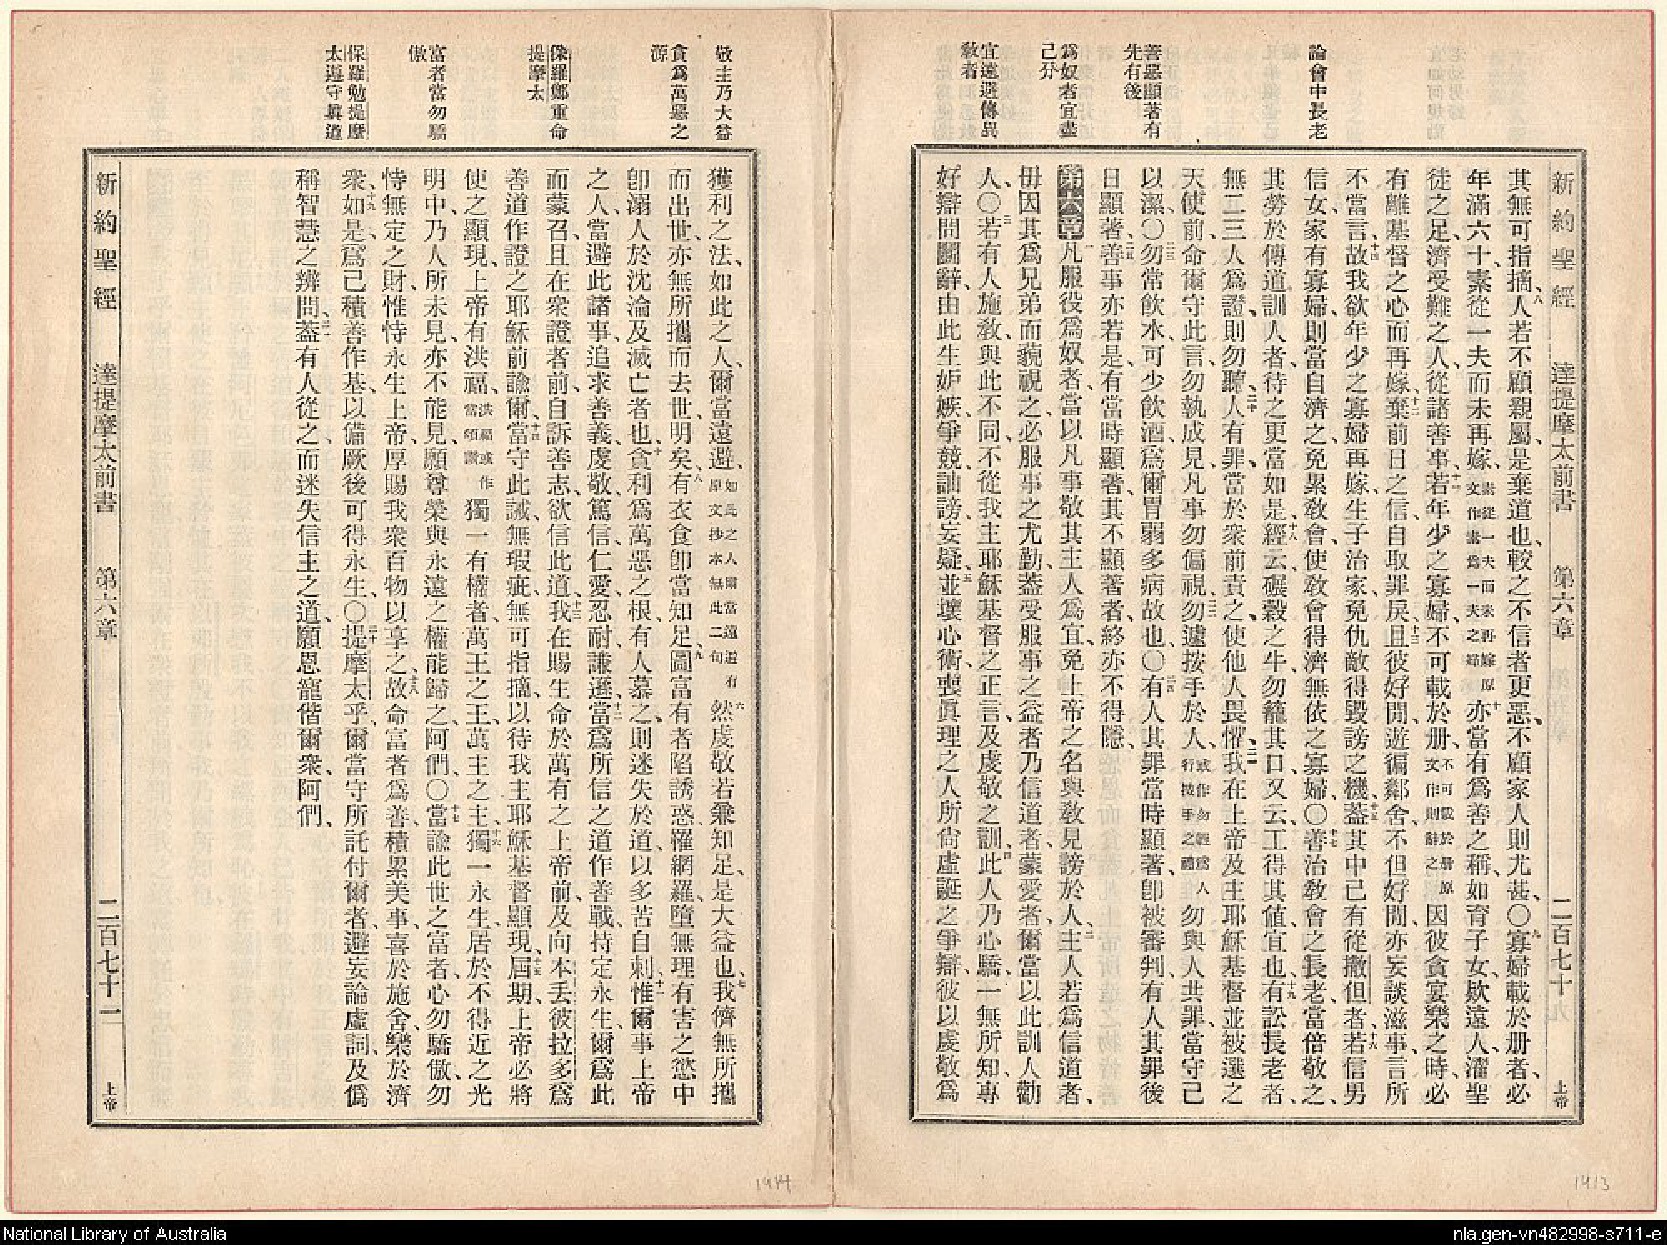 新約聖經　達提摩太前書　第六章　二百七十九　上帝
論會中長老
善惡顯著有
先有後
爲奴者宜盡
己分
宜遠避傳異
敎者
其無可指摘、八人若不顧親屬、是棄道也、較之不信者更惡、不顧家人則尤甚、〇九寡婦載於册者、必
年滿六十、素從一夫而未再嫁、素從一夫而未再嫁原文作嘗爲一夫之婦十亦當有爲善之稱、如育子女、欵遠人、濯聖
徒之足、濟受難之人、從諸善事、十一若年少之寡婦、不可載於册、不可載於册原文作則辭之因彼貪宴樂之時、必
有離基督之心、而再嫁、十二棄前日之信、自取罪戾、十三且彼好閒、遊徧鄰舍、不但好閒、亦妄談滋事、言所
不當言、十四故我欲年少之寡婦再嫁、生子治家、免仇敵得毀謗之機、十五蓋其中已有從撒但者、十六若信男
信女家有寡婦、則當自濟之、免累敎會、使敎會得濟無依之寡婦、〇十七善治敎會之長老、當倍敬之、
其勞於傳道訓人者、待之更當如是、十八經云、碾穀之牛、勿籠其口、又云、工得其値、宜也、十九有訟長老者、
無二三人爲證、則勿聽、二十人有罪、當於衆前責之、使他人畏懼、二一我在上帝及主耶穌基督、並被選之
天使前、命爾守此言、勿執成見、凡事勿偏視、二二勿遽按手於人、或作勿輕爲人行按手之禮勿與人共罪、當守己
以潔、〇二三勿常飲水、可少飲酒、爲爾胃弱多病故也、〇二四有人其罪當時顯著、卽被審判、有人其罪後
日顯著、二五善事亦若是、有當時顯著者、其不顯著者、終亦不得隱、
第六章一凡服役爲奴者、當以凡事敬其主人爲宜、免上帝之名與敎、見謗於人、二主人若爲信道者、
毋因其爲兄弟而藐視之、必服事之尤勤、蓋受服事之益者、乃信道者、蒙愛者、爾當以此訓人勸
人、〇三若有人施敎與此不同、不從我主耶穌基督之正言、及虔敬之訓、四此人乃心驕、一無所知、專
好辯問鬬辭、由此生妒嫉、爭競、訕謗、妄疑、五並壞心術、喪眞理之人、所尙虛誕之爭辯、彼以虔敬爲
敬主乃大益
貪爲萬惡之
源
保羅鄭重命
提摩太
富者當勿驕
傲
保羅勉提摩
太遵守眞道
獲利之法、如此之人、爾當遠避、如此之人爾當遠避有原文抄本無此二句六然虔敬若兼知足、是大益也、七我儕無所攜
而出世、亦無所攜而去世、明矣、八有衣食卽當知足、九圖富有者、陷誘惑羅網、羅墮無理有害之慾中、
卽溺人於沈淪及滅亡者也、十貪利爲萬惡之根、有人慕之、則迷失於道、以多苦自刺、十一惟爾事上帝
之人、當避此諸事、追求善義、虔敬、篤信、仁愛、忍耐、謙遜、十二當爲所信之道作善戰、持定永生、爾爲此
而蒙召、且在衆證者前、自訴善志、欲信此道、十三我在賜生命於萬有之上帝前、及向本丟彼拉多爲
善道作證之耶穌前諭爾、十四當守此誡、無瑕疵、無可指摘、以待我主耶穌基督顯現、十五屆期、上帝必將
使之顯現、上帝有洪福、洪福或作當頌讚獨一有權者、萬王之王、萬主之主、十六獨一永生、居於不得近之光
明中、乃人所未見、亦不能見、願尊榮與永遠之權能歸之、阿們、〇十七當諭此世之富者、心勿驕傲、勿
恃無定之財、惟恃永生上帝、厚賜我衆百物以享之、十八故命富者爲善、積累美事、喜於施舍、樂於濟
衆、十九如是爲己積善作基、以備厥後可得永生、〇二十提摩太乎、爾當守所託付爾者、避妄論虛詞、及僞
稱智慧之辨問、二一蓋有人從之而迷失信主之道、願恩寵偕爾衆、阿們、
新約聖經　達提摩太前書　第六章　二百七十一　上帝
1914
1913
National Library of Australia
nla.gen-vn482998-s711-e